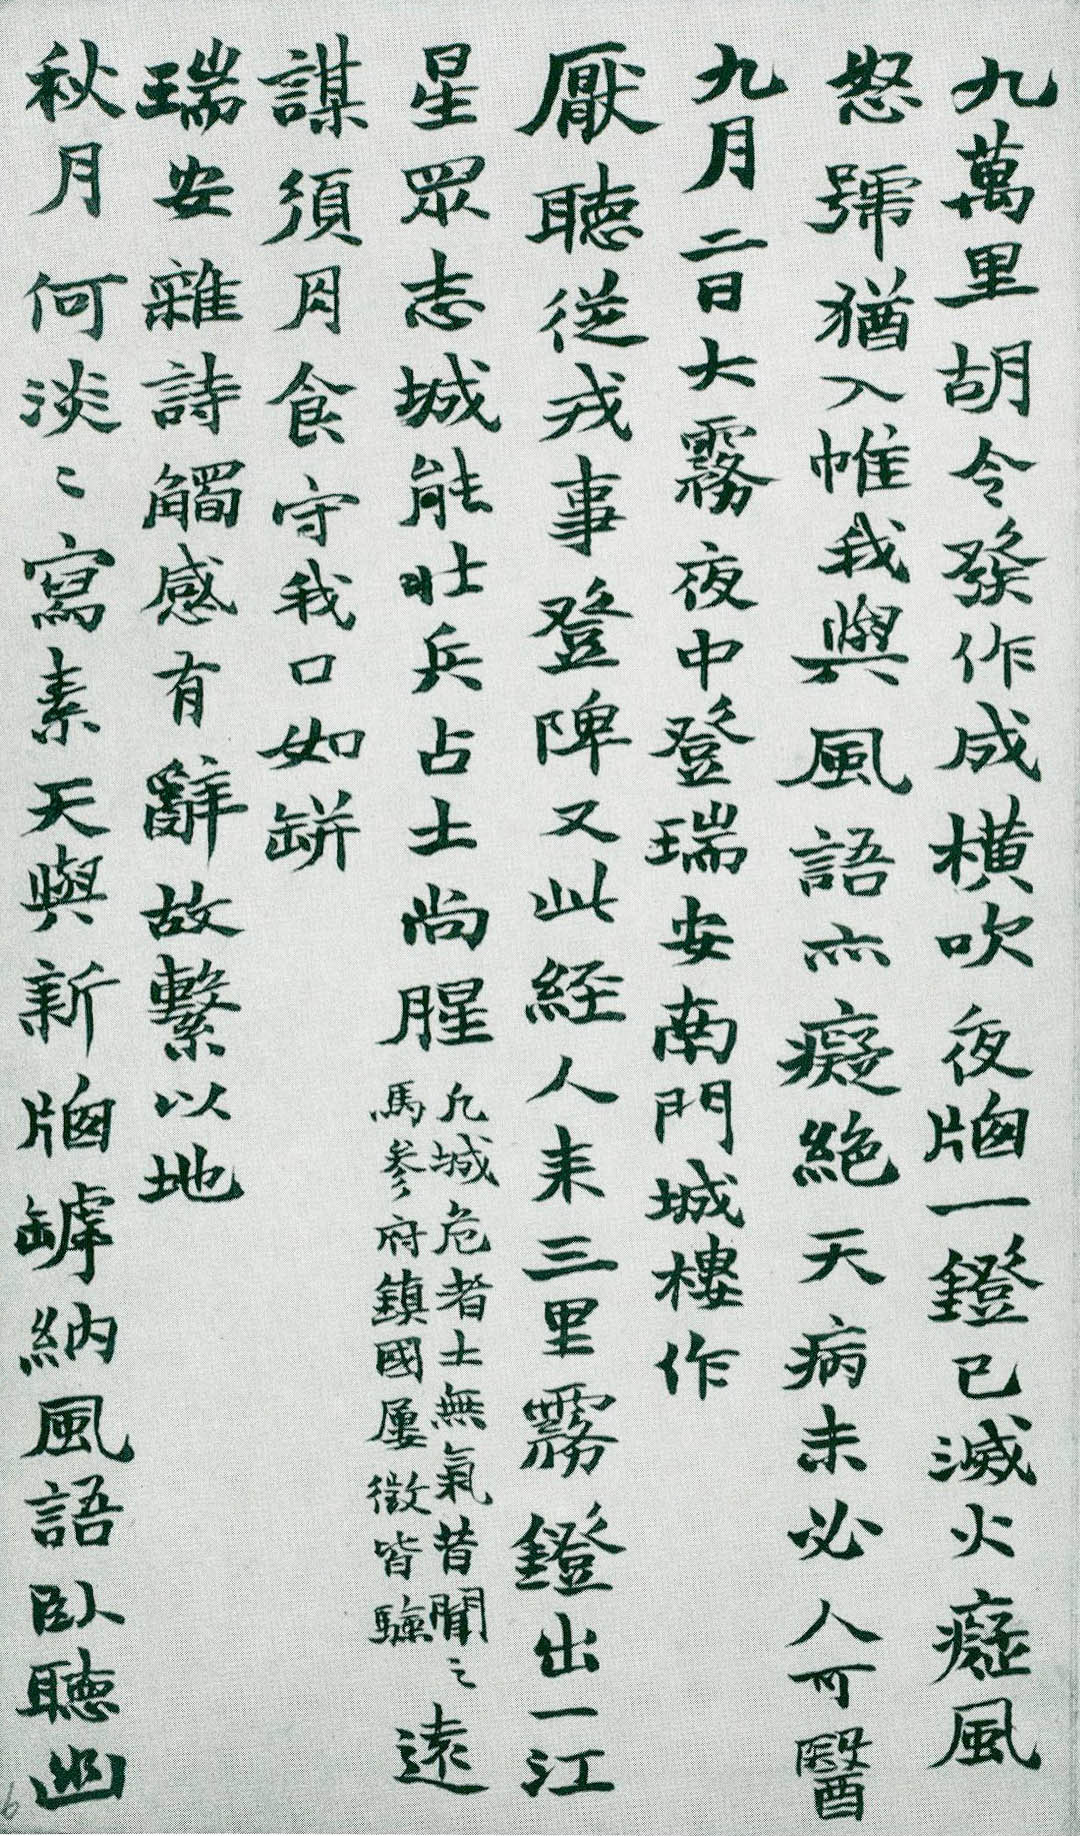 九萬里胡令發作成橫吹夜牕一鐙已滅火癡風
怒號猶入帷我與風語亦癡絕天病未必人可醫
九月二日大霧夜中登瑞安南門城樓作
厭聽從戎事登陴又此經人來三里霧鐙出一江
星眾志城能壯兵占土尚腥
凡城危者土無氣昔聞之
馬參府鎮國屢徵皆驗
遠
謀須月食守我口如缾
瑞安雜詩觸感有辭故繫以地
秋月何淡〻寫素天與新牕罅納風語臥聽幽